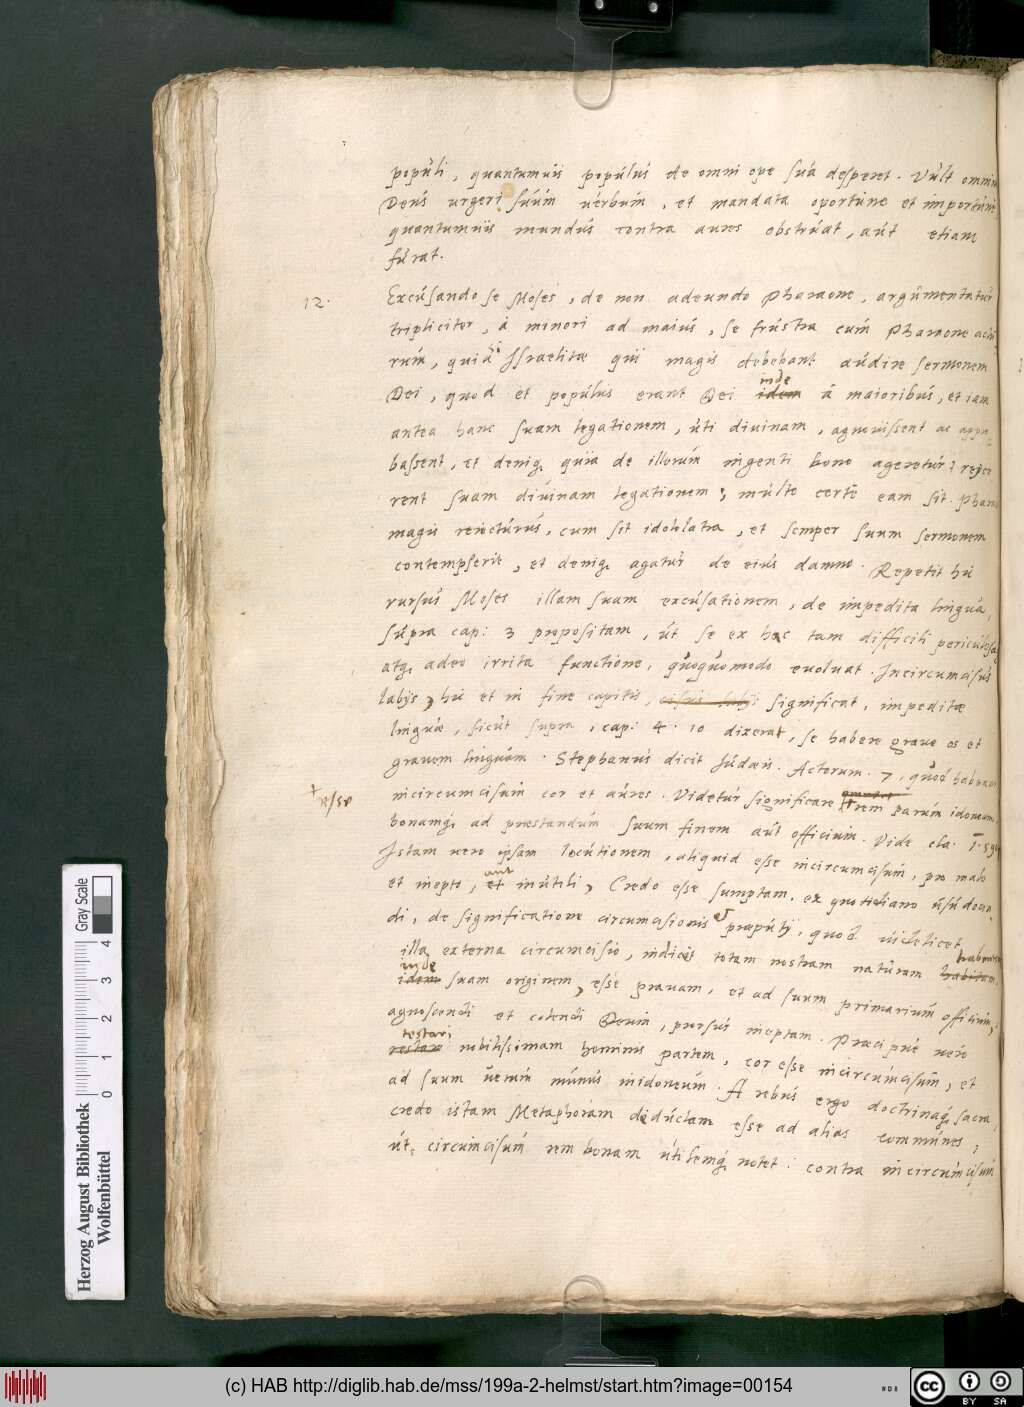 populi, quantumuis populus de omni ope sua desperet. Vult omnino
Deus urgeri suum uerbum, et mandata oportune et importune
quantumuis mundus contra aures obstruat, aut etiam
furat.
12. Excusando se Moses, de non adeundo Pharaone, argumentatur
tripliciter, à minori ad maius, se frustra cum Pharaone actu
rum, quia hi Israelitae qui magis debebant audire sermonem
Dei, quod et populus erant Dei idem inde à maioribus, et iam
antea hanc suam legationem, uti diuinam, agnouissent ac appro
bassent, et deniq, quia de illorum ingenti bono ageretur? rejice
rent suam diuinam legationem; multo certè eam sit Pharao
magis reiecturus, cum sit idololatra, et semper suum sermonem
contempserit, et deniq, agatur de eius damno. Repetit hic
rursus Moses illam suam excusationem, de impedita lingua,
supra cap: 3 propositam, ut se ex hac tam difficili periculosa
atq, adeo irrita functione, quoquomodo euoluat. Incircumcisus
labijs, hic et in fine capitis, cisus labijs significat, impeditae
linguae, sicut supra, cap: 4. 10 dixerat, se habere graue os et
grauem linguam. Stephanus dicit Iudaeis. Actorum. 7, quod habeant
+ esse
incircumcisum cor et aures. Videtur significare rem parum idoneam,
bonamq, ad praestandum suum finem aut officium. Vide cla.
Istam uero ipsam locutionem, aliquid esse incircumcisum, pro malo
et inepto, et aut inutili, Credo esse sumptam, ex quotidiano usu docen
di, de significatione circumcisionis et praeputij, quod uidelicet
illa externa circumcisio, indicet totam nostram naturam habitam habentem
idem inde suam originem, esse prauam, et ad suum primarium officium,
agnoscendi et colendi Deum, prorsus ineptam. Praecipue uero
restare testari nobilissimam hominis partem, cor esse incircumcisum, et
ad suum uerum munus inidoneum. A rebus ergo doctrinaq, sacra,
credo istam Metaphoram deductam esse ad alias communes,
ut, circumcisum rem bonam utilemq, notet: contra incircumcisum
Herzog August Bibliothek
Wolfenbüttel
0 1 2 3 4
Gray Scale
(c) HAB http://diglib.hab.de/mss/199a-2-helmst/start.htm?image=00154
cc BY SA